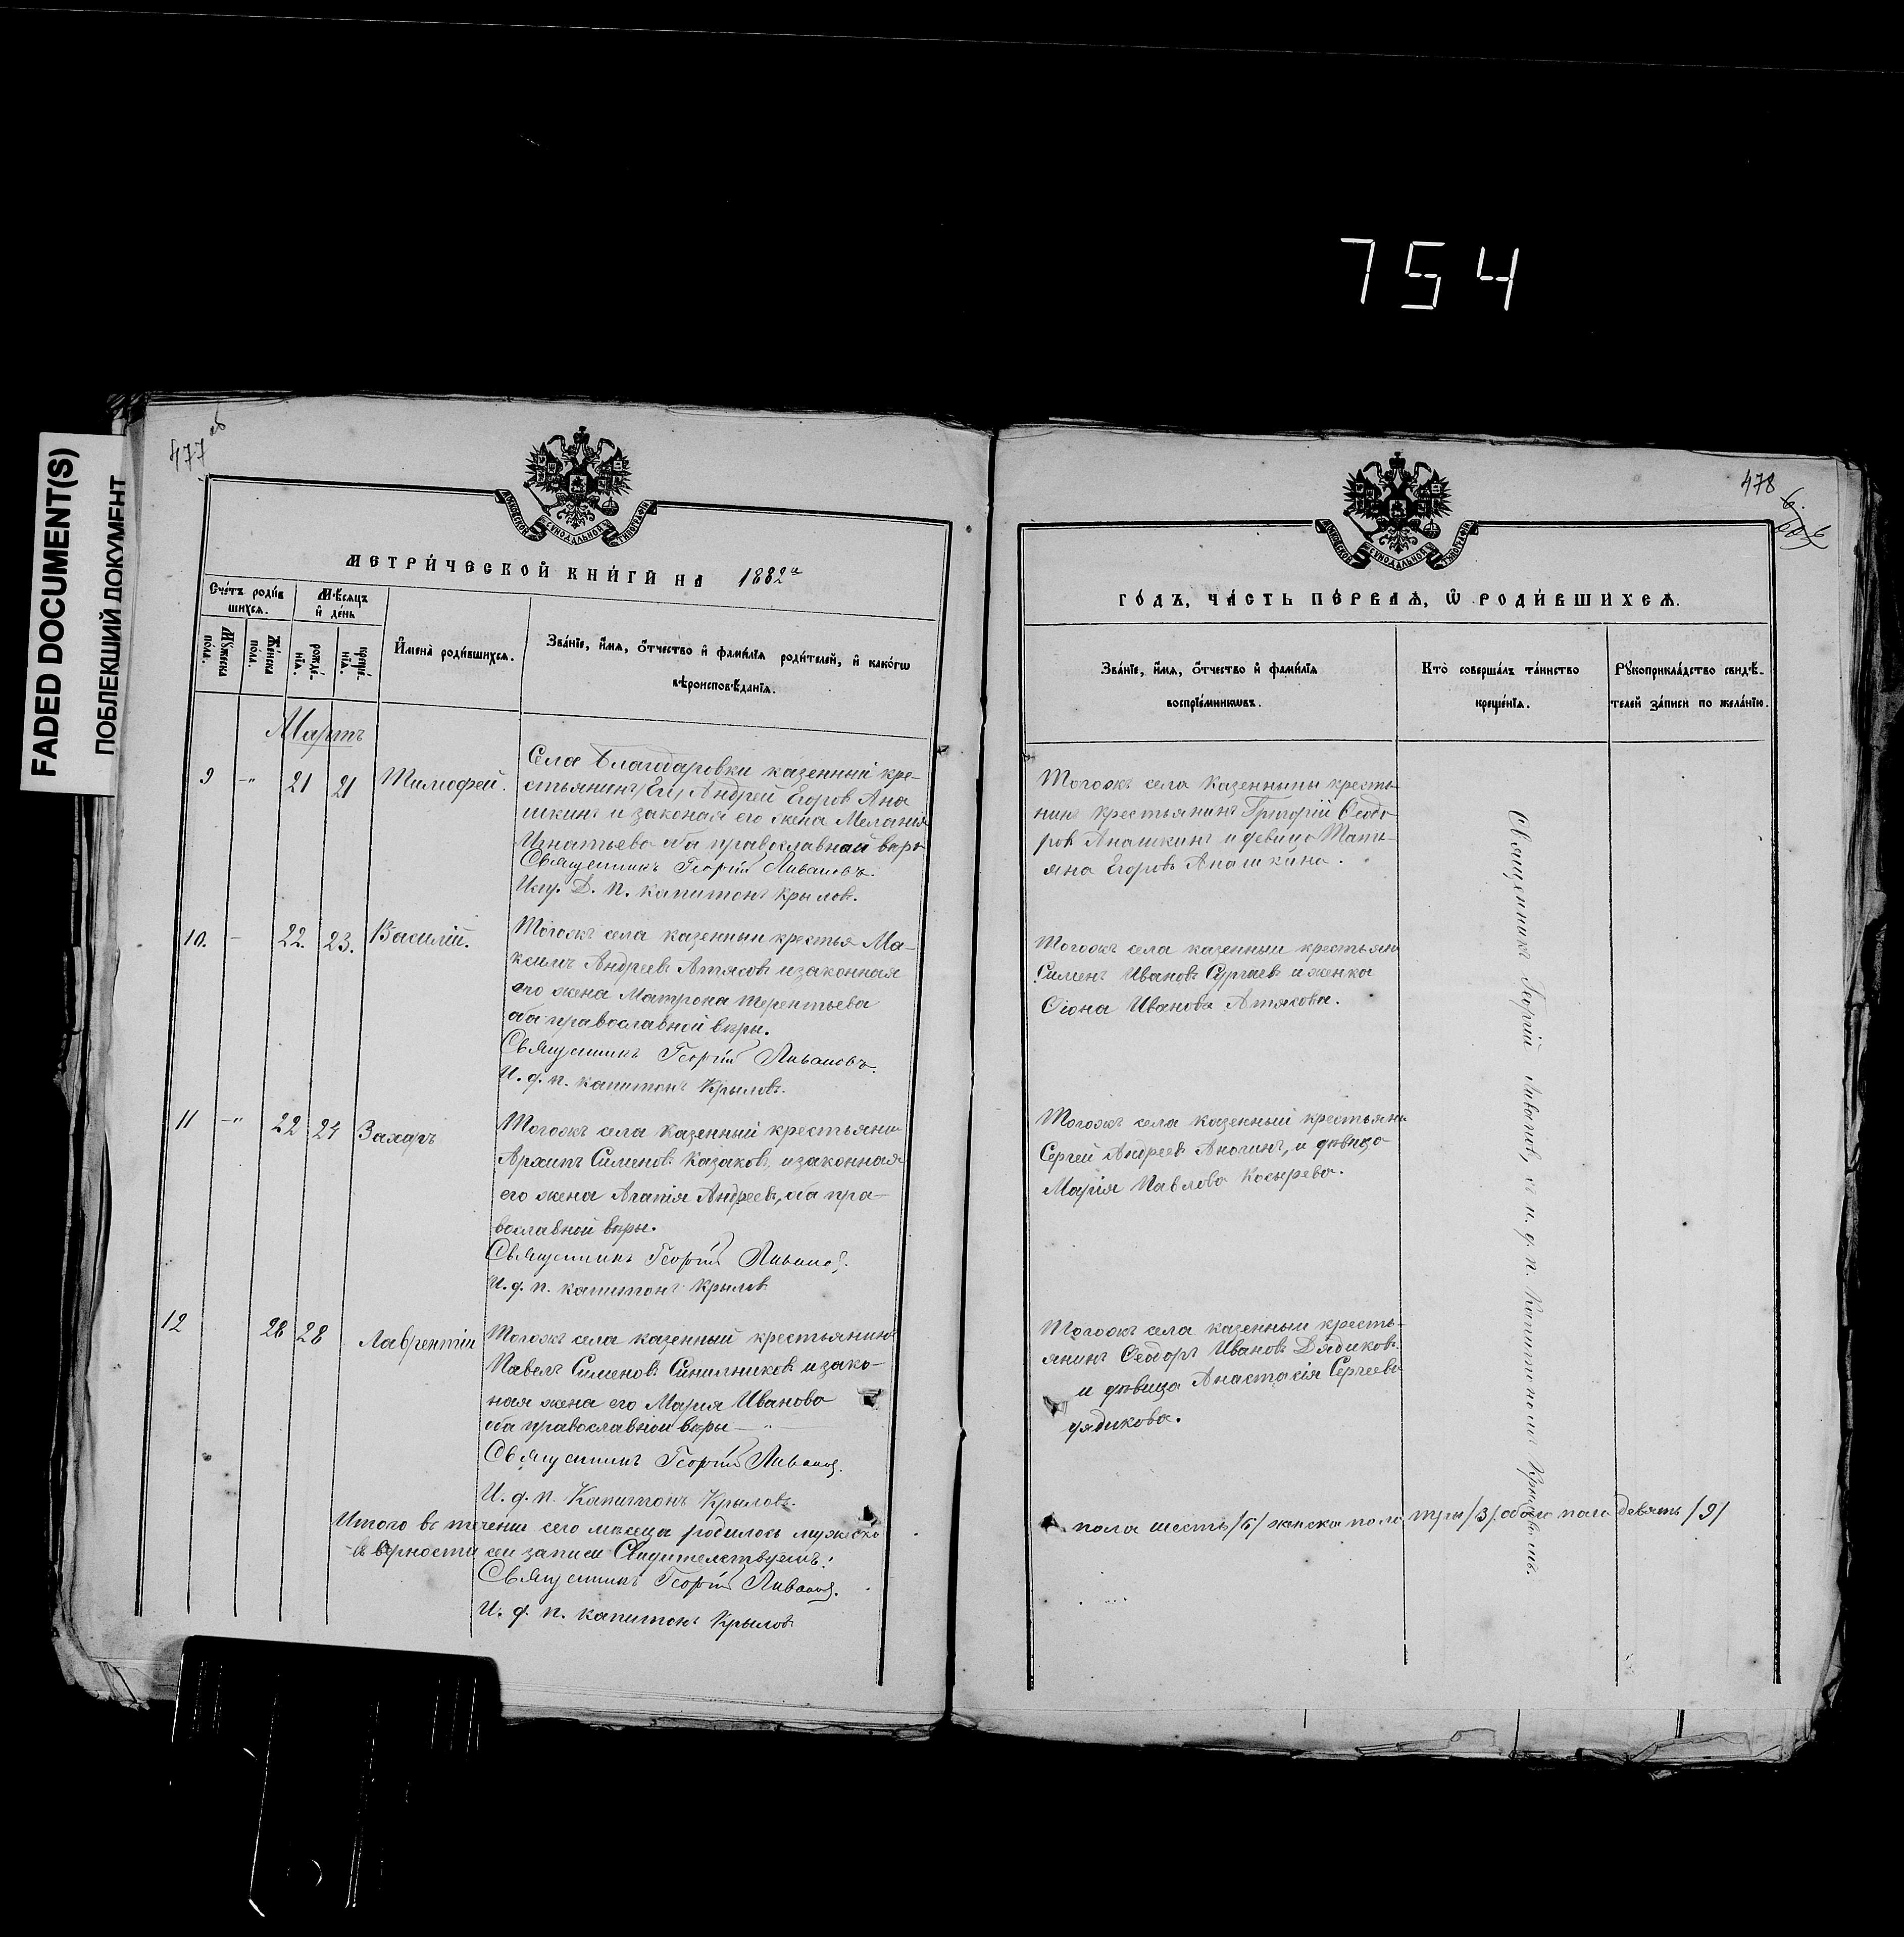 754
FADED DOCUMENT(S)
ПОБЛЕКШИЙ ДОКУМЕНТ
477 об
МОСКОВСКОЙ СѴНОДАЛЬНОЙ ТИПОГРАФІИ
МЕТРИ́ЧЕСКОЙ КНИ́ГИ НА 1882
Сче́тъ роди́в
шихся.
Мѣ́сяцъ
и де́нь
Мꙋ́жеска
по́ла.
Же́нска
по́ла.
рожде́-
нїѧ.
креще́-
нїѧ.
И҆мена̀ роди́вшихсѧ.
Зва́нїе, и҆́мѧ, ѻ҆́тчество и҆ фами́лїѧ роди́телей, и҆ како́гѡ
вѣроисповѣ́данїѧ.
Мартъ
9 -" 21 21 Тимофей.
Села Благодаровки казенный кре-
стьянинъ Андрей Егоровъ Ана
шкинъ и законая его жена Мелания
Игнатьева оба православной веры
Священникъ Георгій Ливановъ.
И. Д. П. Капитонъ Крыловъ.
10. - 22. 23. Василій.
Тогожъ села казенныи крестья Ма-
ксимъ Андреевъ Атяковъ и законная
его жена Матрона Терентьева
оба православной веры.
Священникъ Георгій Ливановъ.
И. д. п. Капитонъ Крыловъ.
11 -" 22 24 Захаръ
Тогожъ села казенный крестьяни
Архипъ Сименовъ Казаковъ и законная
его жена Агапія Андреева, оба пра-
вославной веры.
Священникъ Георгій Ливановъ.
И. д. п. Капитонъ Крыловъ
12 28 28 Лаврентіи
Тогожъ села казенный крестьянинъ
Павелъ Сименовъ Синильниковъ и зако-
ная жена его Мария Иванова
оба православной веры
Священникъ Георгій Ливановъ.
И. д. п. Капитонъ Крыловъ.
Итого въ течени сего месеца родилось мужеска
в верности сеи записи Свидителствуемъ:
Священникъ Георгій Ливановъ.
И. д. п. Капитонъ Крыловъ
478
МОСКОВСКОЙ СѴНОДАЛЬНОЙ ТИПОГРАФІИ
ГО́ДЪ, ЧА́СТЬ ПЕ́РВАѦ, Ѽ РОДИ́ВШИХСѦ.
Зва́нїе, и҆́мѧ, ѻ҆́тчество и҆ фами́лїѧ
воспрїе́мникѡвъ.
Кто̀ соверша́лъ та́инство
креще́нїѧ.
Рꙋкоприкла́дство свидѣ́-
телей за́писи по жела́нїю.
Тогожъ села казенныи кресть-
нин крестьянинъ Григорій Ѳеодо
ровъ Анашкинъ и девица Тать-
яна Егоровъ Анашкина.
Тогожъ села казенныи крестьяни
Сименъ Ивановъ Сургаевъ и женка
Иванова Атякова.
Тогожъ села казенный крестьяни
Сергей Андреевъ Аношинъ, и девица
Марія Павлова Косырева.
Тогожъ села казенныи кресть-
янинъ Ѳеодоръ Ивановъ Дядиковъ
и девица Анастасія Сергеева
дядикова.
Священникъ Георгій Ливановъ, съ и. д. п. Капитономъ Крыловымъ.
пола шесть /6/ женска пола три /3/ обоего пола девять /9/